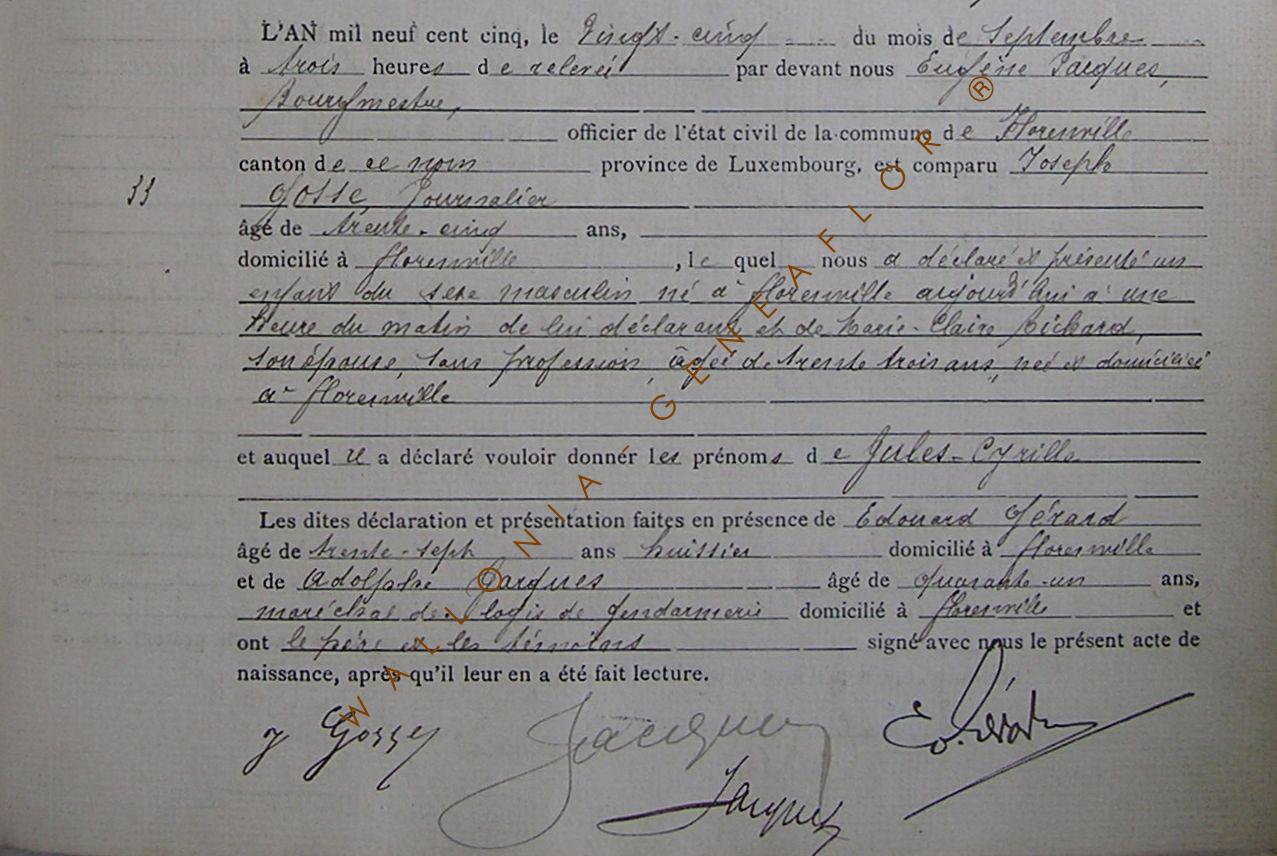 L'AN mil neuf cent cinq, le Vingt-cinq du mois de Septembre
à trois heures de relevée par devant nous Eugène Jacques,
Bourgmestre,
officier de l'état civil de la commune de Florenville
canton de ce nom province de Luxembourg, est comparu Joseph
Gosse, Journalier
âgé de trente-cinq ans,
domicilié à florenville, lequel nous a déclaré et présenté un
enfant du sexe masculin né à florenville aujourd'hui à une
heure du matin de lui déclarant et de Marie-Claire Richard,
son épouse, sans profession, âgée de trente trois ans, née et domiciliée
à florenville
et auquel il a déclaré vouloir donner les prénoms de Jules-Cyrille
Les dites déclaration et présentation faites en présence de Edouard Gérard
âgé de trente-sept ans huissier domicilié à florenville
et de Adolphe Jacques âgé de quarante-un ans,
maréchal des logis de gendarmerie domicilié à florenville et
ont le père et les témoins signé avec nous le présent acte de
naissance, après qu'il leur en a été fait lecture.
J Gosse Jacques Ed. Gérard
Jacques
WALLONIA-GENEAFLOR®